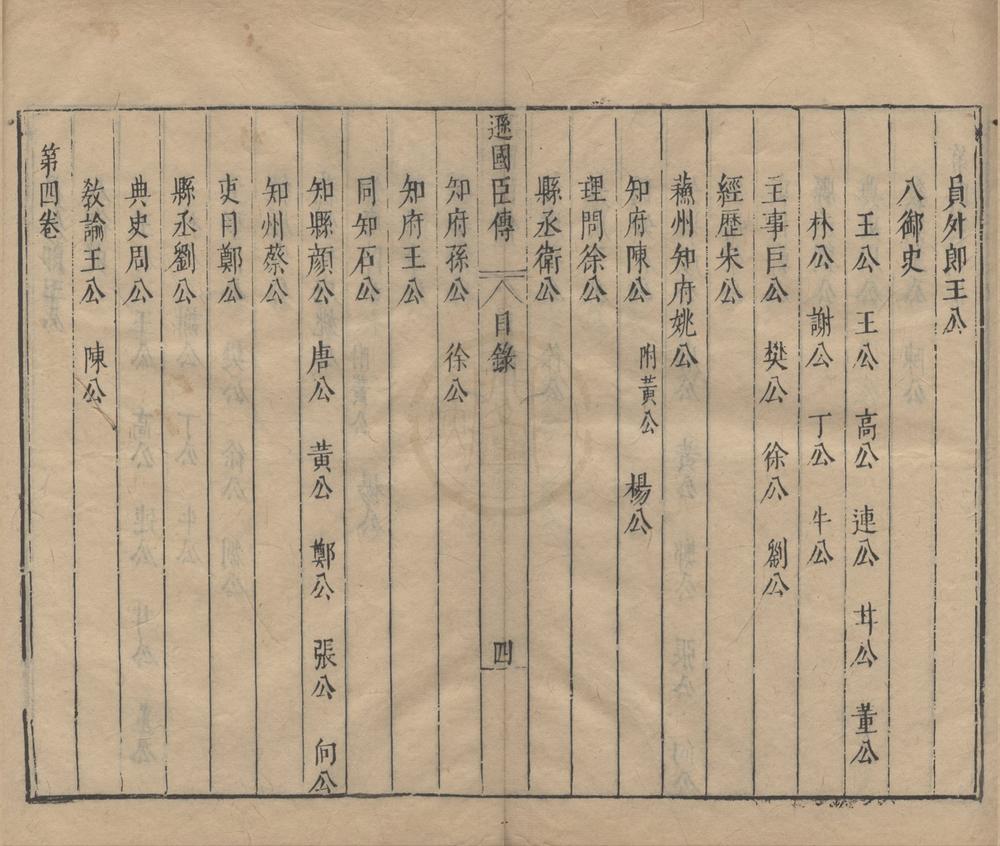 員外郎王公
八御史
王公　王公　高公　連公　甘公　董公
林公　謝公　丁公　牛公
主事巨公　樊公　徐公　劉公
經歷宋公
蘇州知府姚公
知府陳公　附黃公　楊公
理問徐公
縣丞衛公
遜國臣傳　目錄　四
知府孫公　徐公
知府王公
同知石公
知縣顔公　唐公　黃公　鄭公　張公　向公
知州蔡公
吏目鄭公
縣丞劉公
典史周公
敎諭王公　陳公
第四卷